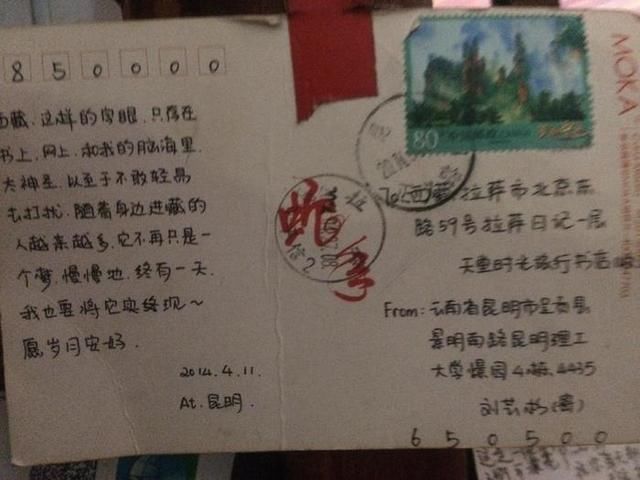 850000
西藏.这样的字眼.只存在
书上,网上,和我的脑海里.
太神圣.以至于不敢轻易
去打扰.随着身边进藏的
人越来越多.它不再只是一
个梦.慢慢地.终有一天.
我也要将它实终现～
愿岁月安好.
2014.4.11.
At.昆明.
80
MOKA
To:西藏.拉萨市北京东
路59号拉萨日记一层
天堂时光旅行书店
From:云南省昆明市呈贡县
景明南路昆明理工
大学 4栋.4435
650500